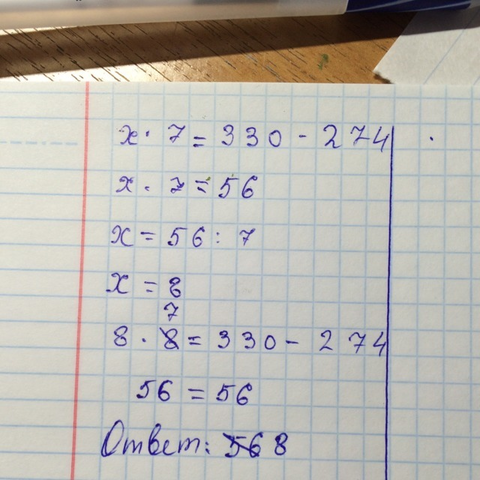 x · 7 = 330 - 274
x · 7 = 56
x = 56 : 7
x = 8
7
8 · 8 = 330 - 274
56 = 56
Ответ: 56 8